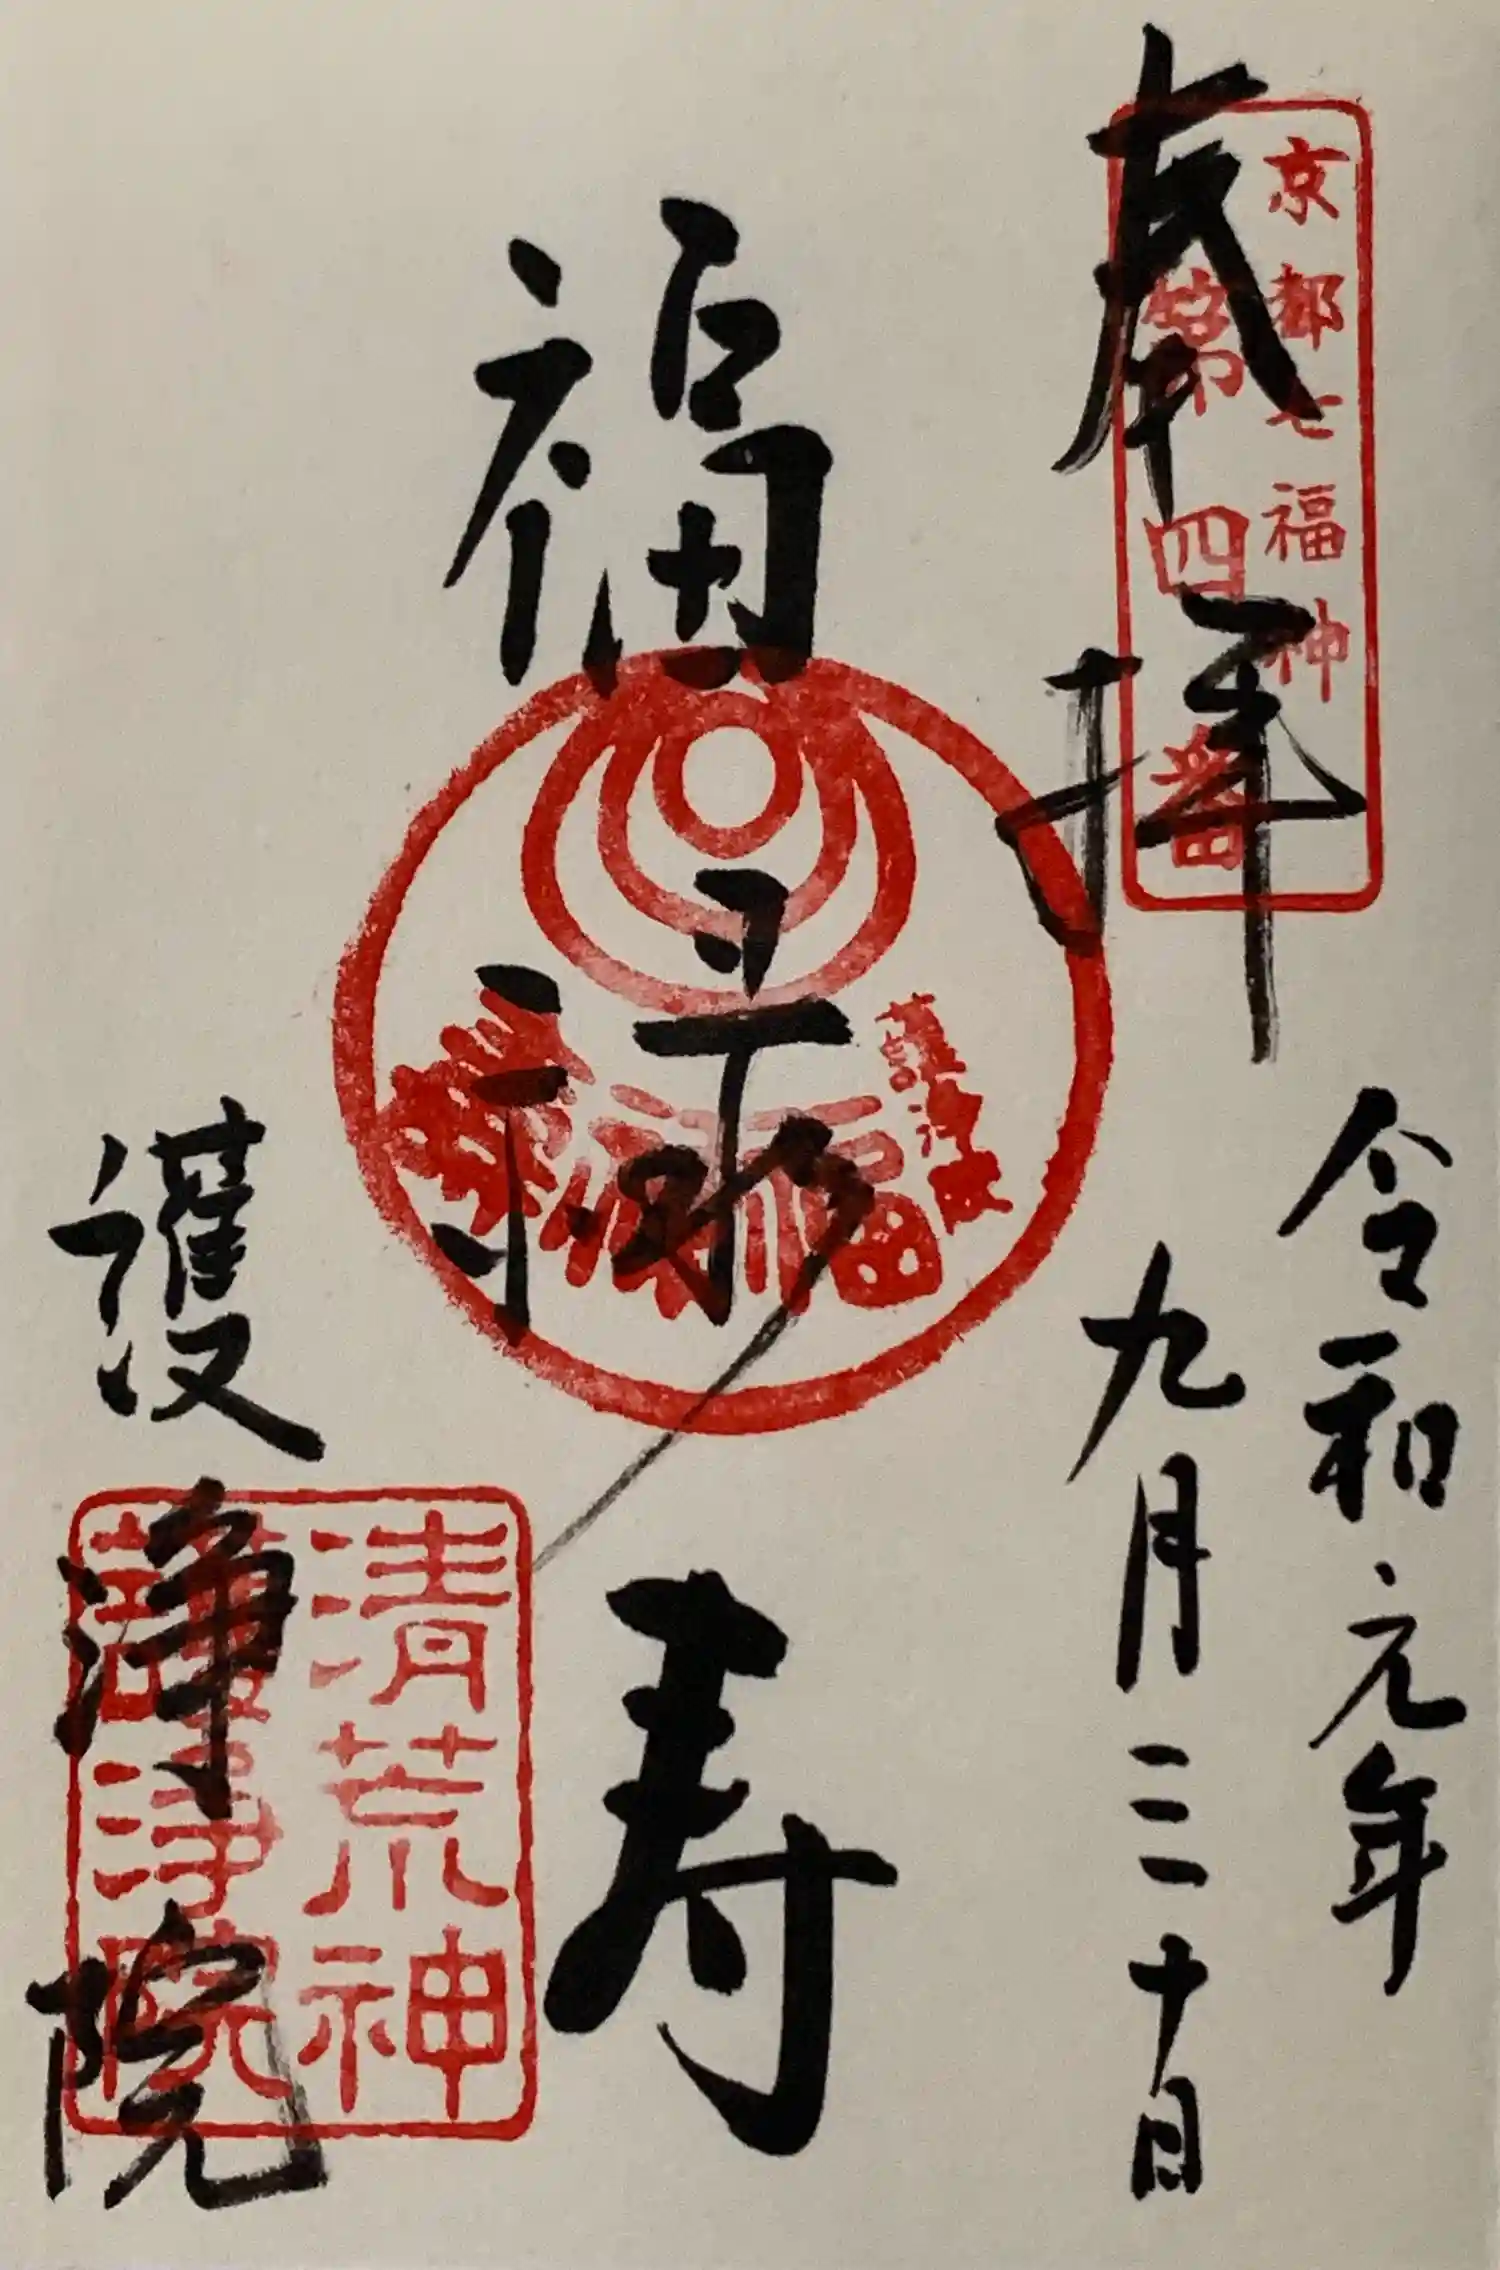 奉拝
京都七福神
第四番
令和元年
九月三十日
福禄寿
護浄院
福禄寿
清荒神
護浄院
護浄院